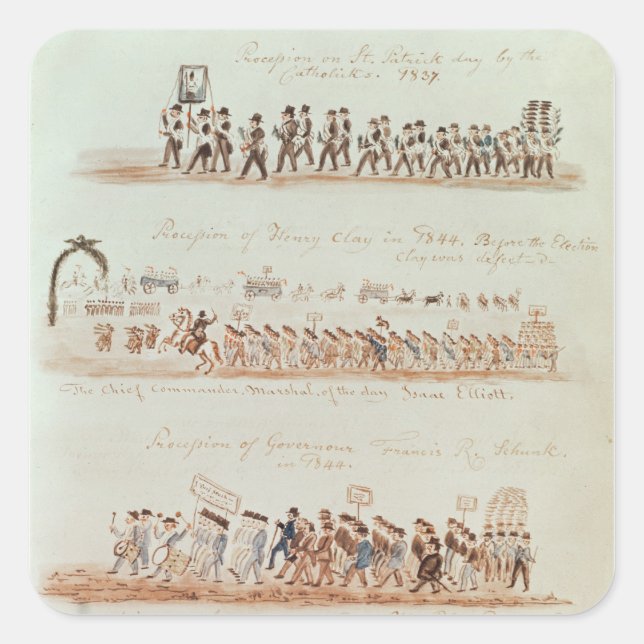 Procession on St. Patrick day by the
Catholicks. 1837.
Procession of Henry Clay in 1844. Before the Election
Clay was defeat-d-
The Chief Commander, Marshal, of the day Isaac Elliott.
Procession of Governour Francis R. Shunk.
in 1844.